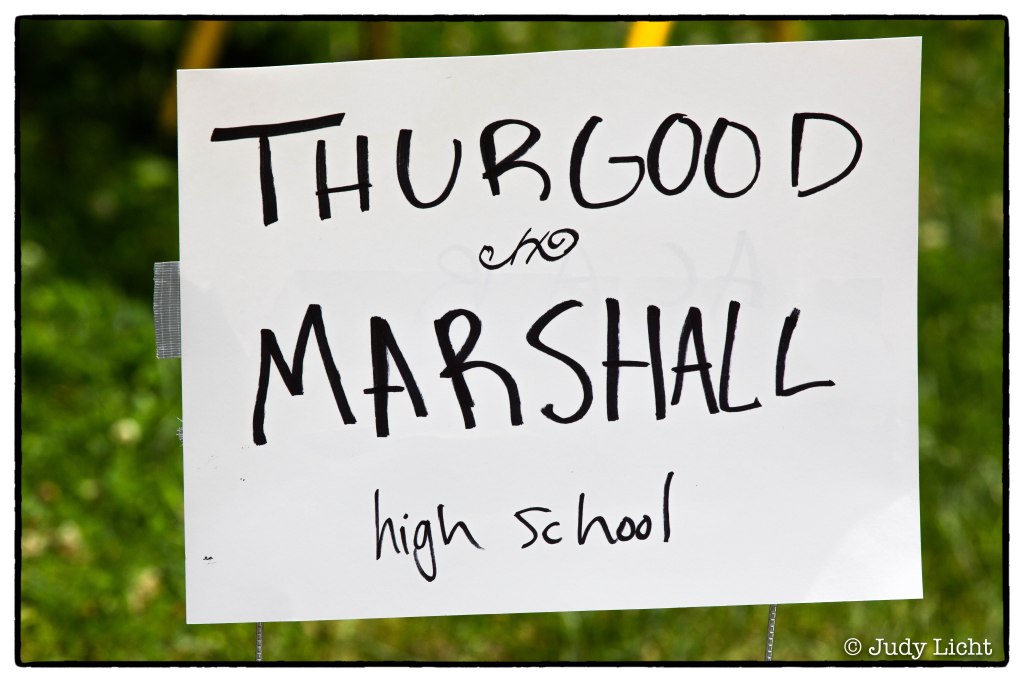 THURGOOD
MARSHALL
high school
© Judy Licht